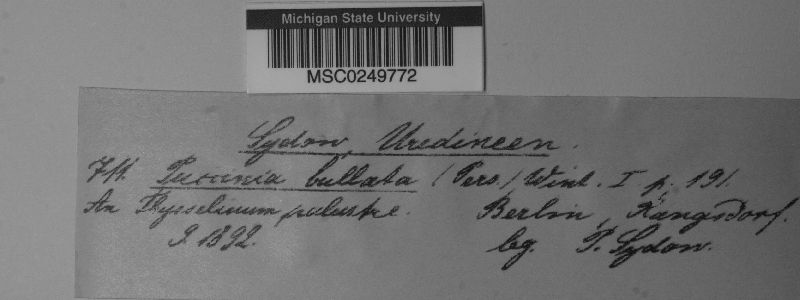 Michigan State University
MSC0249772
Sydow, Uredineen.
711. Puccinia bullata (Pers.) Wint. I p. 191.
An Thysselinum palustre. Berlin, Rangsdorf.
9. 1892. lg. P. Sydow.